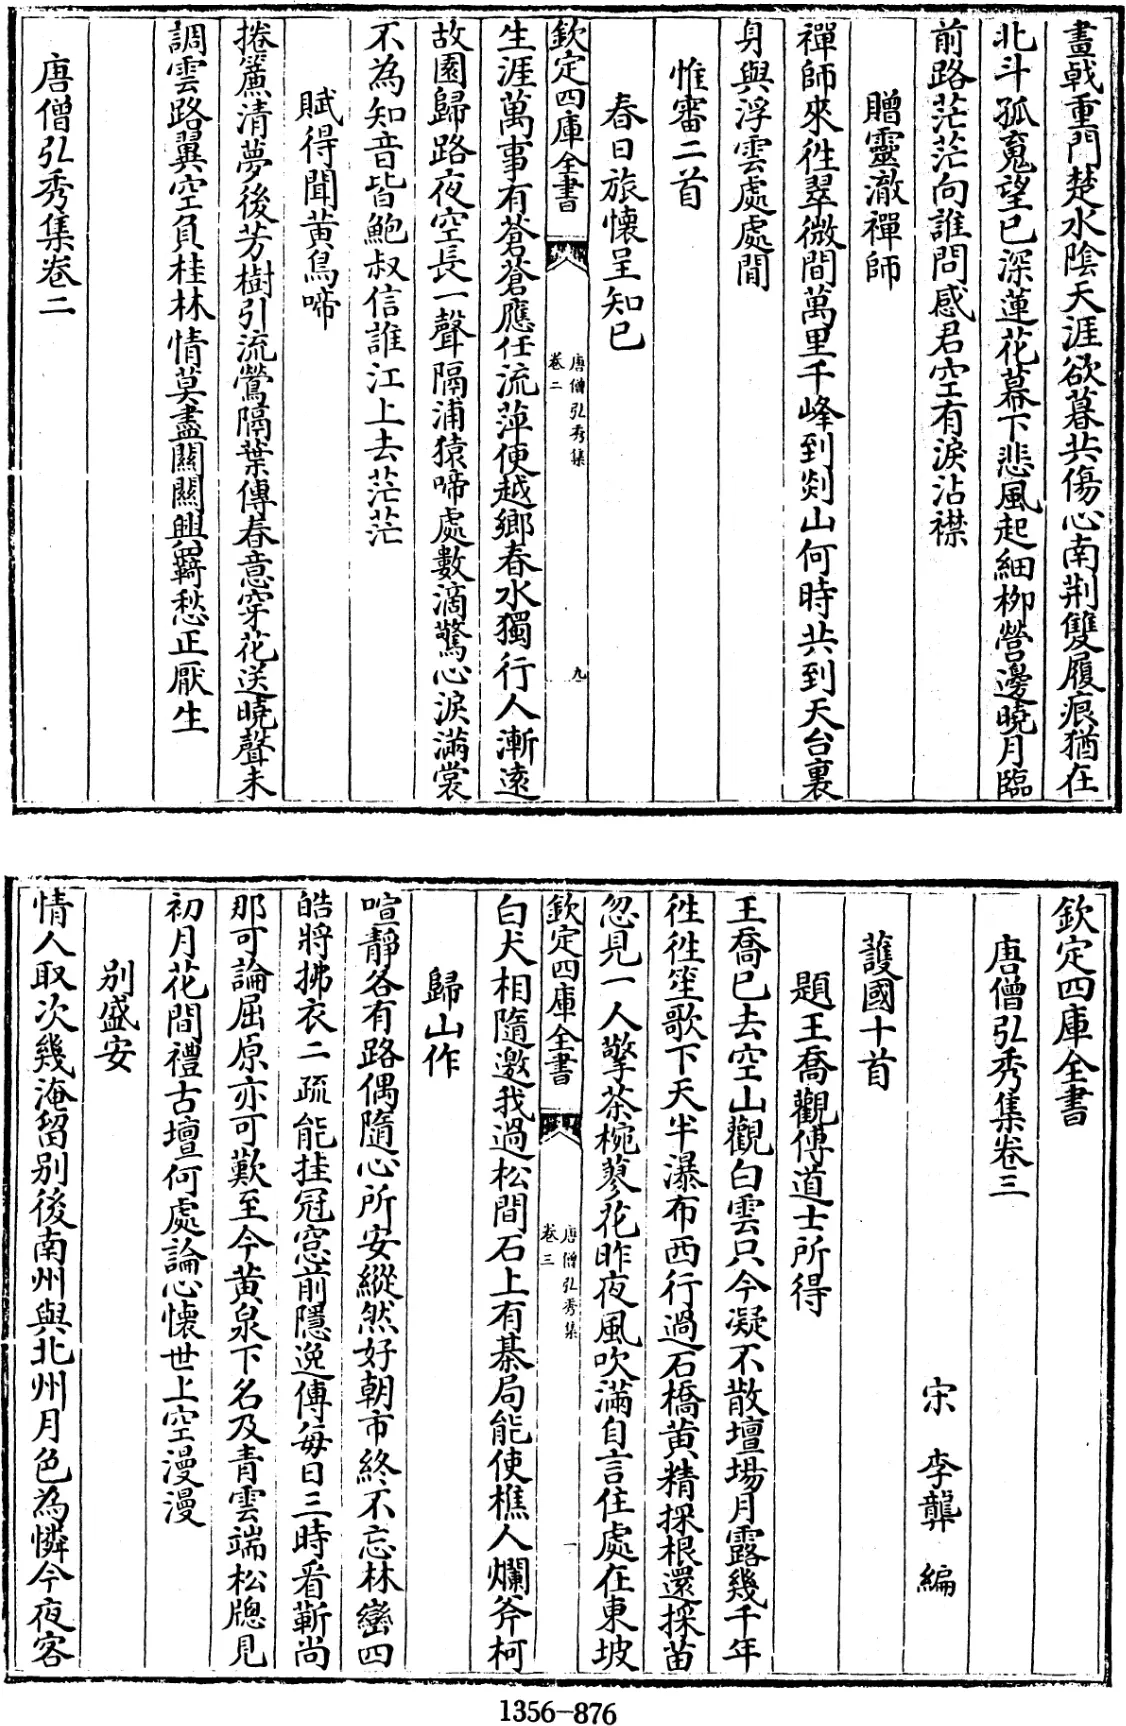 畫戟重門楚水隂天涯欲暮共傷心南荆雙履痕猶在
北斗孤䰟望已深蓮花幕下悲風起細栁營邊曉月臨
前路茫茫向誰問感君空有淚沾襟
贈靈澈禪師
禪師來徃翠微間萬里千峰到剡山何時共到天台裏
身與浮雲處處閒
惟審二首
春日旅懷呈知已
欽定四庫全書
唐僧弘秀集
卷二
九
生涯萬事有蒼蒼應任流萍便越鄉春水獨行人漸逺
故園歸路夜空長一聲隔浦猿啼處數滴驚心淚滿裳
不為知音皆鮑叔信誰江上去茫茫
賦得聞黄鳥啼
捲簾清夢後芳樹引流鶯隔葉傳春意穿花送曉聲未
調雲路翼空負桂林情莫盡關關興羇愁正厭生
唐僧弘秀集卷二
欽定四庫全書
唐僧弘秀集卷三
宋 李龏 編
護國十首
題王喬觀傅道士所得
王喬已去空山觀白雲只今凝不散壇場月露幾千年
徃徃笙歌下天半瀑布西行過石橋黄精採根還採苗
忽見一人擎茶椀蓼花昨夜風吹滿自言住處在東坡
欽定四庫全書
唐僧弘秀集
卷三
一
白犬相隨邀我過松間石上有棊局能使樵人爛斧柯
歸山作
喧靜各有路偶隨心所安縱然好朝市終不忘林巒四
皓將拂衣二疏能挂冠窓前隱逸傳每日三時看靳尚
那可論屈原亦可歎至今黄泉下名及青雲端松牕見
初月花間禮古壇何處論心懷世上空漫漫
别盛安
情人取次幾淹留别後南州與北州月色為憐今夜客
1356-876